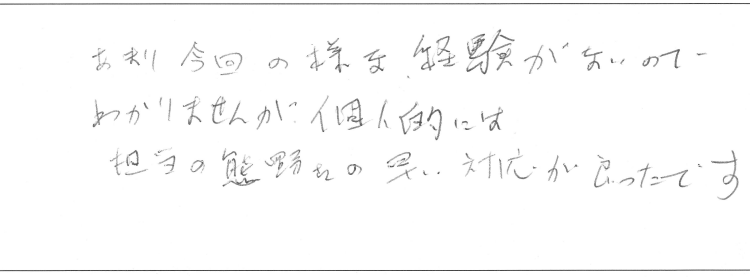 あまり今回の様な経験がないので
わかりませんが、個人的には
担当の熊野さんの早い対応が良ったです